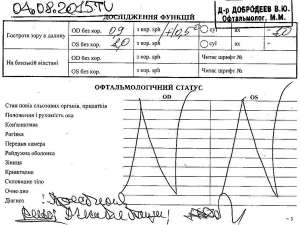 04.08.2015
Д-р ДОБРОДЕЕВ В.Ю.
Офтальмолог, М.М.
ДОСЛІДЖЕННЯ ФУНКЦІЙ
Гострота зору в далину
OD без кор. 0,9 з кор. sph +0,5 cyl ax
OS без кор. 1,0 з кор. sph cyl ax
На близькій відстані
OD без кор. з кор. sph Читає шрифт №
OS без кор. з кор. sph Читає шрифт №
ОФТАЛЬМОЛОГІЧНИЙ СТАТУС
OD OS
Стан повік сльозових органів, придатків
Положення і рухомість ока
Кон'юнктива
Рогівка
Передня камера
Райдужна оболонка
Зіниця
Кришталик
Склоподібне тіло
Очне дно
Діагноз